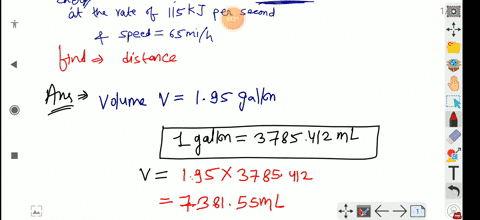 energy
at the rate of 115 kJ per second
& speed = 65 mi/h
find → distance
Ans → Volume V = 1.95 gallon
1 gallon = 3785.412 mL
V = 1.95 × 3785.412
= 7381.55 mL